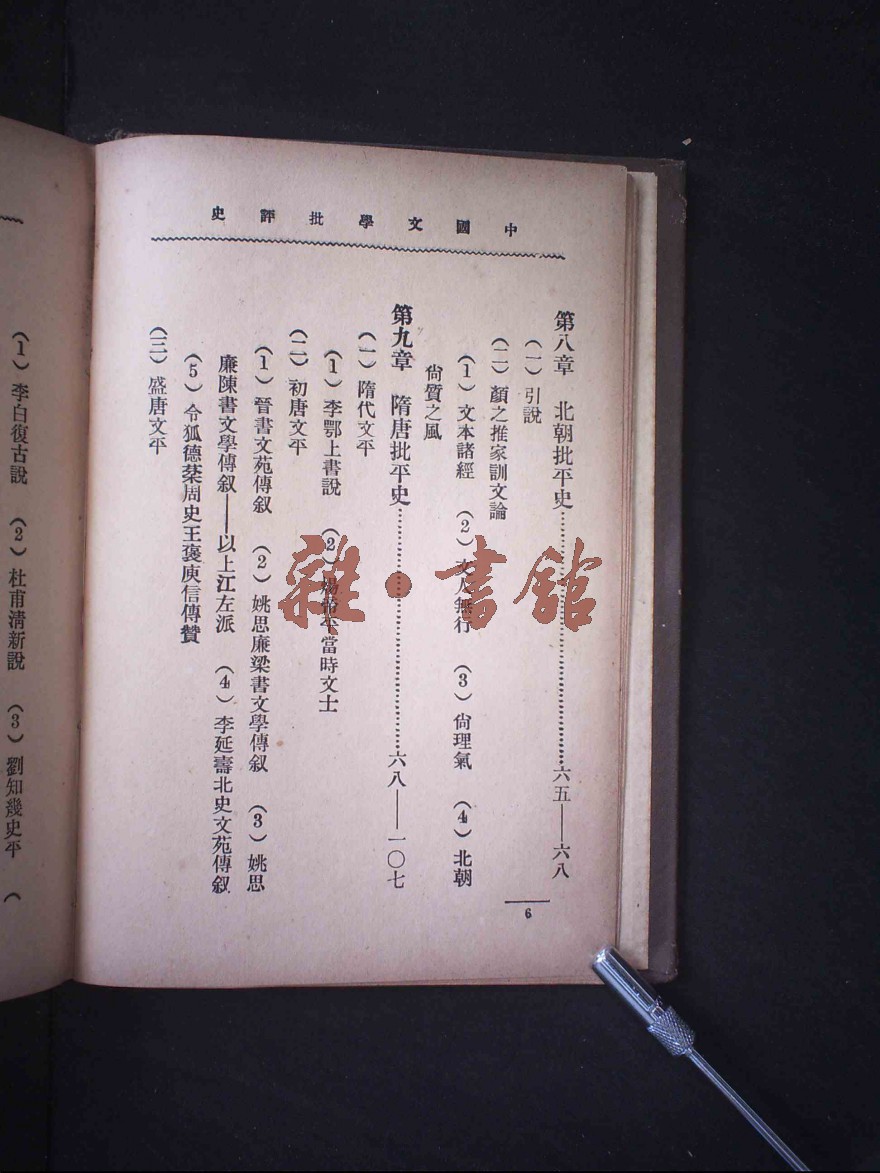 中國文學批評史
第八章　北朝批平史……六五——六八
（一）引說
（二）顏之推家訓文論
（1）文本諸經　（2）文人無行　（3）尙理氣　（4）北朝
尙質之風
第九章　隋唐批平史……六八——一〇七
（一）隋代文平
（1）李鄂上書說　（2）煬帝平當時文士
（二）初唐文平
（1）晉書文苑傳叙　（2）姚思廉梁書文學傳叙　（3）姚思
廉陳書文學傳叙——以上江左派　（4）李延壽北史文苑傳叙
（5）令狐德棻周史王褒庾信傳贊
（三）盛唐文平
6
（1）李白復古說　（2）杜甫清新說　（3）劉知幾史平　（
雜·書館